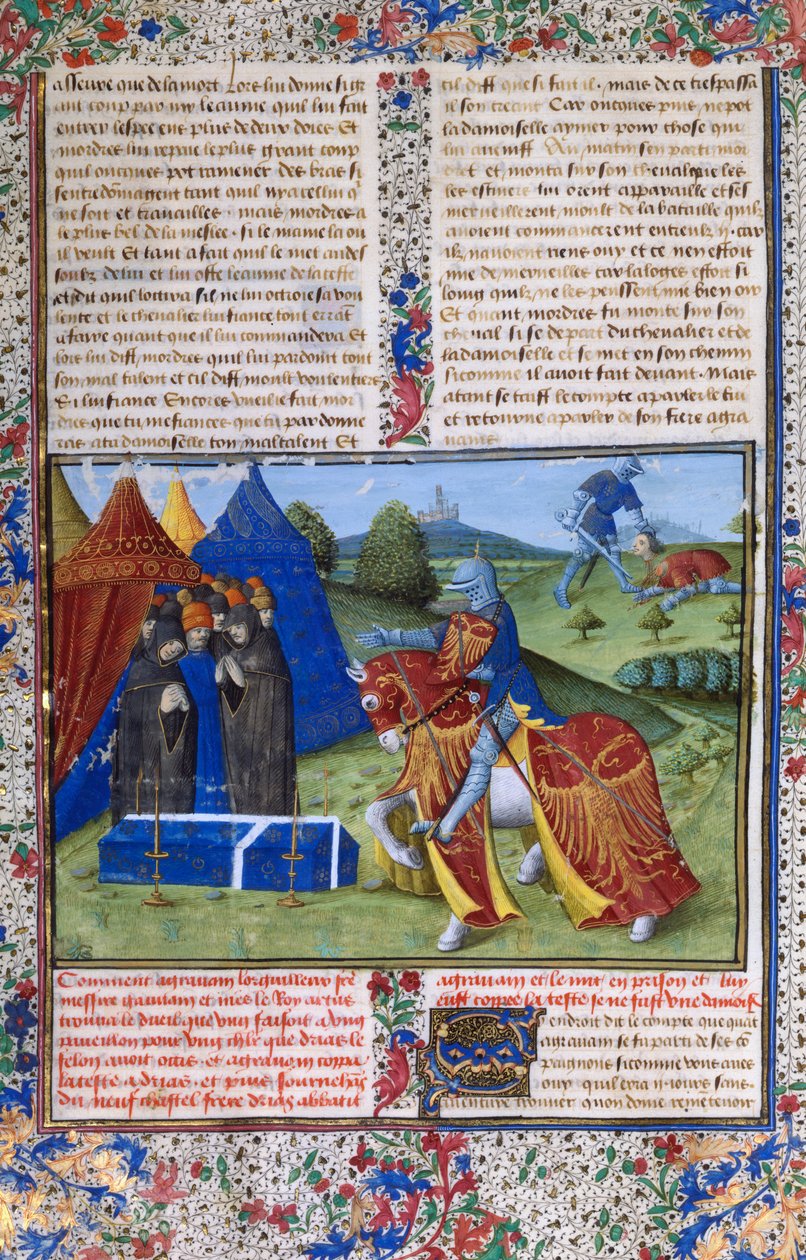 asseure que de la mort Lors lui donne si gr
ant coup par my le eaume quil lui fait
entrer lespee ens plus de deux dois Et
mordres lui repaie le plus grant coup
quil oncques pot ramener des bras si
sentredomagent tant quil ny a cellui q
ne soit et travailles . mais mordres a
le plus bel de la meslee . si le maine la ou
il veult Et tant a fait que le met au des
soubz de lui et lui oste le eaume de la teste
et dit quil locira sil ne lui octroie sa vou
lente et le chevalier lui fiance tout errat
a faire quant que il lui commandera Et
lors lui dist mordres quil lui pardonit tout
son mal talent et cil dist moult voulentiers
Et lui fiance Encores vueil ie fait mor
dres que tu me fiances que tu pardonne
ras a ta damoiselle ton maltalent Et
cil dist que si fait il . mais de ce trespassa
il son creant Car oncques puis ne pot
la damoiselle aymer pour chose que
lui avenist Au matin sen parti mor
dret et monta sur son cheval que les
les estuiers lui orent appareille et ses
merveillerent moult de la bataille quilz
avoient commancerent entreulx ij . car
ilz navoient riens ouy et ce nen estoit
mie de merveilles car la loges estoit si
loing quilz ne les peussent mie bien ouir
Et quant mordres fu monte sur son
cheval si se depart du chevalier et de
la damoiselle et se met en son chemin
si comme il avoit fait devant . Mais
atant se taist le compte a parler de lui
et retourne a parler de son frere agra
vains
Comment agravain lorguilleux fre
messire gauvain et nies le Roy artus
trouva le dueil que lun faisoit a ung
paveillon pour ung chlr que drias le
felon avoit occis et agravain coppa
la teste a drias . et puis sournehan
du neuf chastel frere drias abbatit
agravain et le mit en prison et luy
eust coppee la teste se ne fust une damoise
Cendroit dit le compte que quat
agravain se fu parti de ses co
pagnons si comme vous aves
ouy quil erra ij iours sans
aventure trouver qui on doive ramentevoir